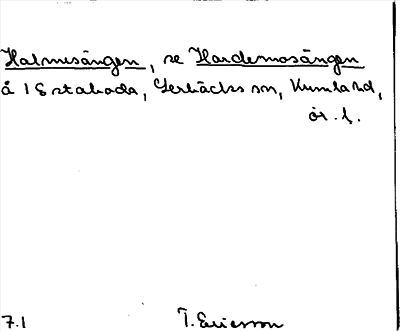 Halmesängen, se Hardemosängen
å 18 stabada, Lerbäcks sn, Kumla hd,
ör. l.
7.1 T. Ericsson